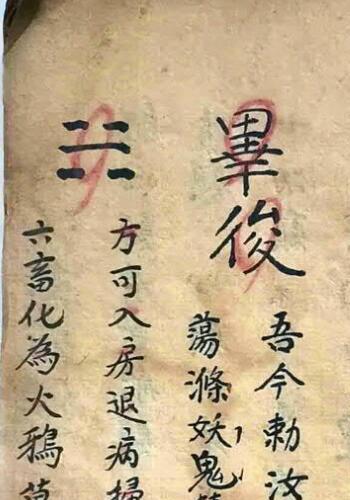 畢後
吾今勅汝
蕩滌妖鬼
方可入房退病
六畜化為火鴉